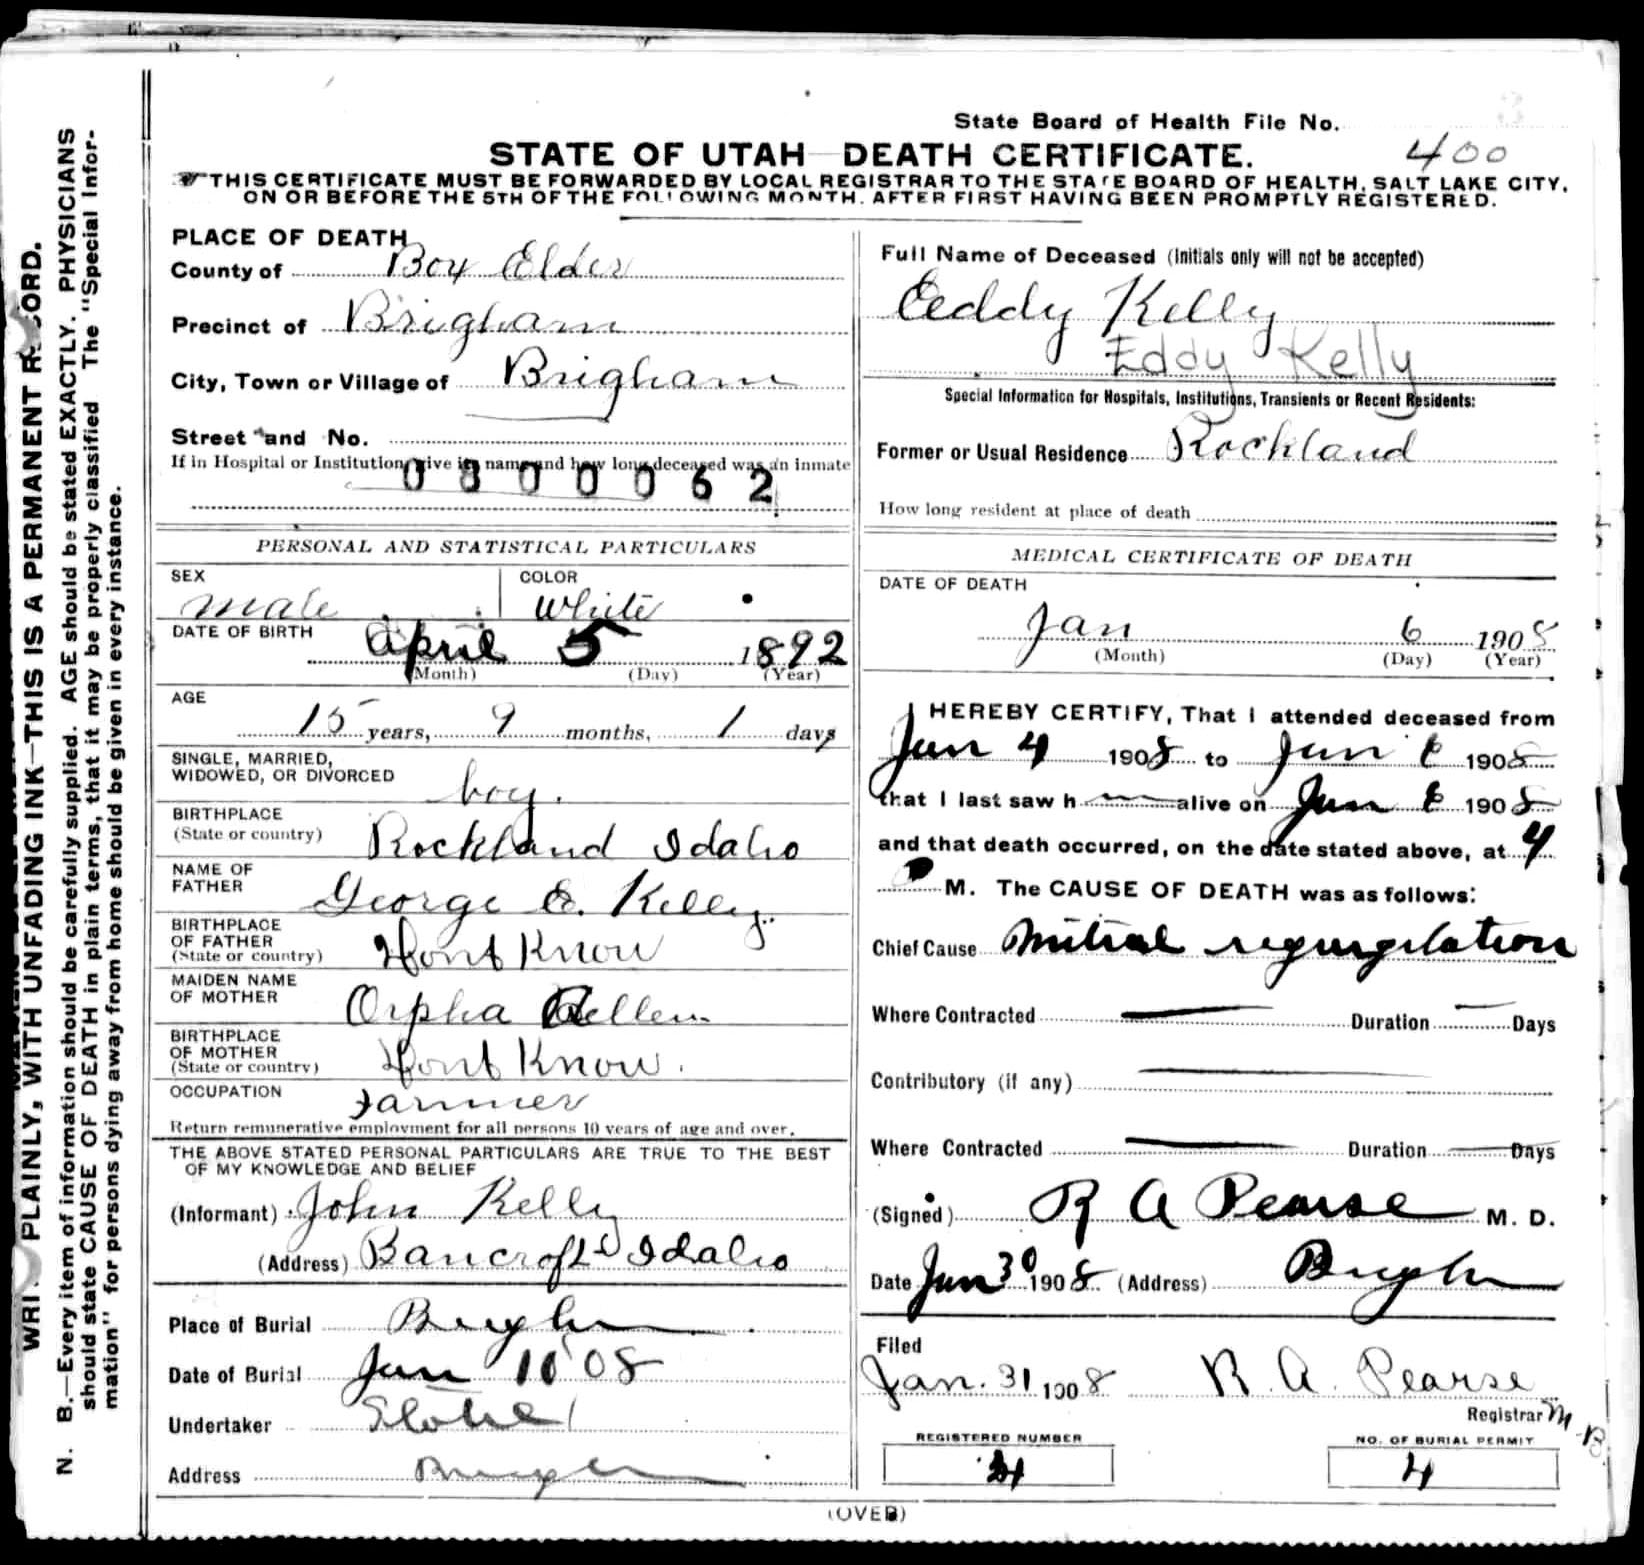 State Board of Health File No.
400
STATE OF UTAH—DEATH CERTIFICATE.
THIS CERTIFICATE MUST BE FORWARDED BY LOCAL REGISTRAR TO THE STATE BOARD OF HEALTH, SALT LAKE CITY,
ON OR BEFORE THE 5TH OF THE FOLLOWING MONTH, AFTER FIRST HAVING BEEN PROMPTLY REGISTERED.
PLACE OF DEATH
County of Box Elder
Precinct of Brigham
City, Town or Village of Brigham
Street and No.
If in Hospital or Institution give its name and how long deceased was an inmate
0800062
PERSONAL AND STATISTICAL PARTICULARS
SEX COLOR
male White
DATE OF BIRTH
April 5 1892
(Month) (Day) (Year)
AGE
15 years, 9 months, 1 days
SINGLE, MARRIED,
WIDOWED, OR DIVORCED
boy.
BIRTHPLACE
(State or country) Rockland Idaho
NAME OF
FATHER George E. Kelly.
BIRTHPLACE
OF FATHER
(State or country) Dont Know
MAIDEN NAME
OF MOTHER Orpha
BIRTHPLACE
OF MOTHER
(State or country) Dont Know.
OCCUPATION
Farmer
Return remunerative employment for all persons 10 years of age and over.
THE ABOVE STATED PERSONAL PARTICULARS ARE TRUE TO THE BEST
OF MY KNOWLEDGE AND BELIEF
(Informant) John Kelly
(Address) Bancroft Idaho
Place of Burial Brigham
Date of Burial Jan 10 08
Undertaker
Address Brigham
Full Name of Deceased (Initials only will not be accepted)
Eddy Kelly
Eddy Kelly
Special Information for Hospitals, Institutions, Transients or Recent Residents:
Former or Usual Residence Rockland
How long resident at place of death
MEDICAL CERTIFICATE OF DEATH
DATE OF DEATH
Jan 6 1908
(Month) (Day) (Year)
I HEREBY CERTIFY, That I attended deceased from
Jan 4 1908 to Jan 6 1908
that I last saw h m alive on Jan 6 1908
and that death occurred, on the date stated above, at 4
P M. The CAUSE OF DEATH was as follows:
Chief Cause Mitral regurgitation
Where Contracted Duration Days
Contributory (if any)
Where Contracted Duration Days
(Signed) R A Pearse M. D.
Date Jan 30 1908 (Address) Brigham
Filed
Jan. 31 1908 R. A. Pearse
Registrar M-B
REGISTERED NUMBER NO. OF BURIAL PERMIT
4
(OVER)
WRITE PLAINLY, WITH UNFADING INK—THIS IS A PERMANENT RECORD.
N. B.—Every item of information should be carefully supplied. AGE should be stated EXACTLY. PHYSICIANS
should state CAUSE OF DEATH in plain terms, that it may be properly classified The "Special Infor-
mation" for persons dying away from home should be given in every instance.